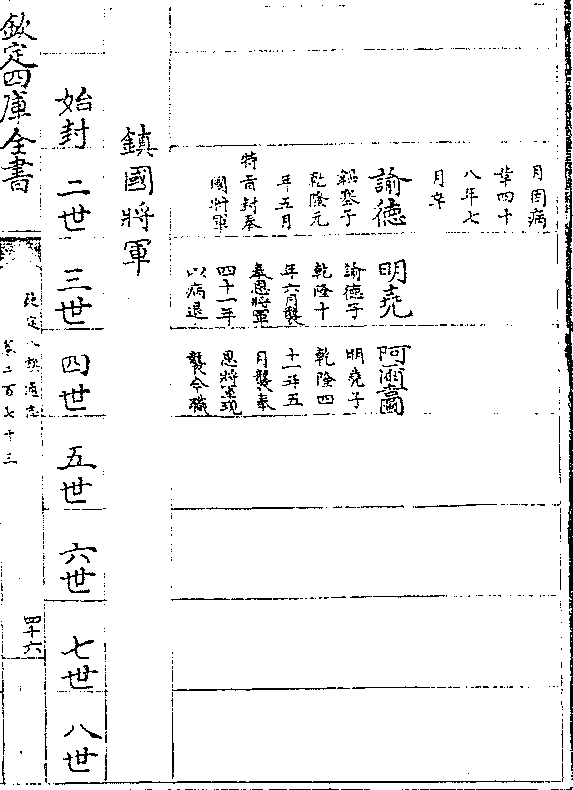 月因病
革四十
八年七
月卒
諭德
塞子
乾隆元
年五月
特旨封奉
國將軍
明堯
諭德子
乾隆十
年六月襲
奉恩將軍
四十一年
以病退
阿
明堯子
乾隆四
十一年五
月襲奉
恩將軍現
襲今職
鎮國將軍
始封
二世
三世
四世
五世
六世
七世
八世
欽定四庫全書
欽定八旗通志
卷二百七十三
四十六